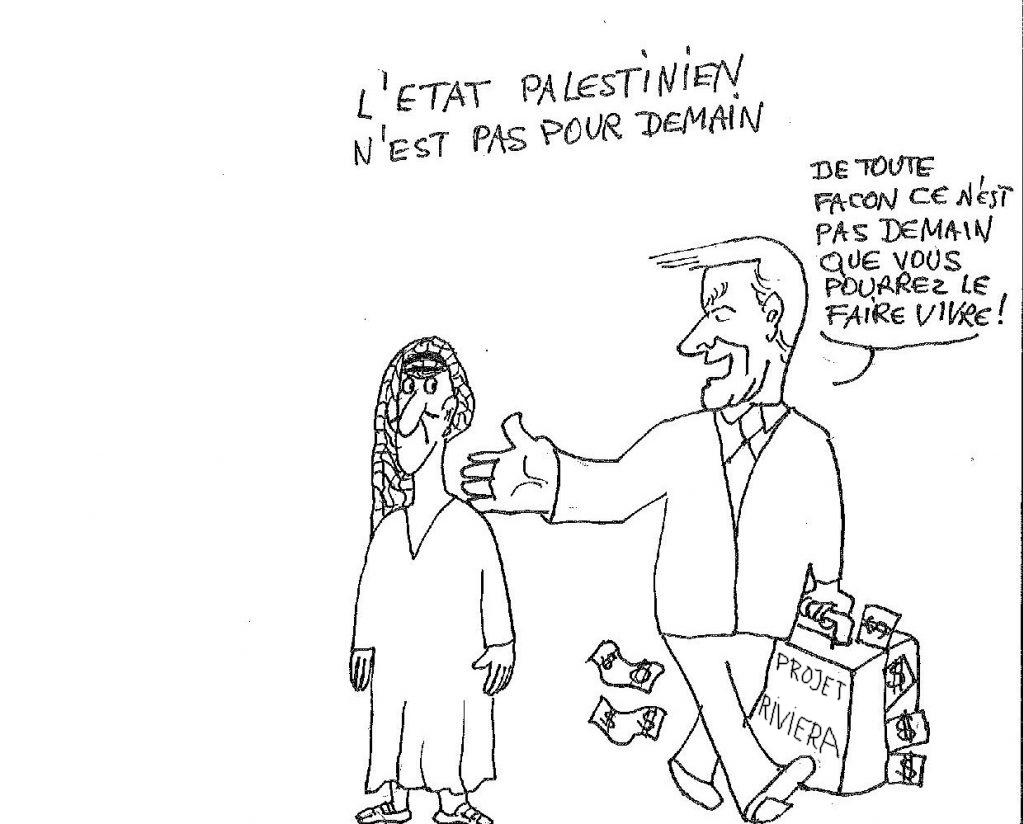 L'ETAT PALESTINIEN
N'EST PAS POUR DEMAIN
DE TOUTE
FACON CE N'EST
PAS DEMAIN
QUE VOUS
POURREZ LE
FAIRE VIVRE!
PROJET
RIVIERA
$
$ $
$ $
$
$
$